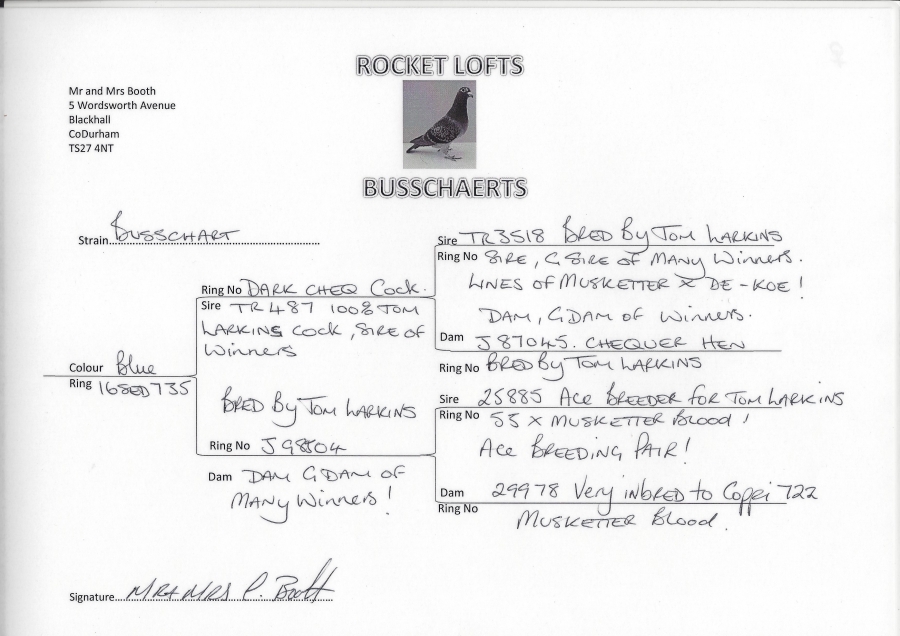 ROCKET LOFTS
Mr and Mrs Booth
5 Wordsworth Avenue
Blackhall
CoDurham
TS27 4NT
BUSSCHAERTS
Strain BUSSCHART
Colour Blue
Ring 16SED735
Ring No DARK CHEQ COCK.
Sire TR487 100% TOM
LARKINS COCK, SIRE OF
WINNERS
BRED BY TOM LARKINS
Ring No J98504
Dam DAM GDAM OF
MANY WINNERS!
Sire TR3518 BRED BY TOM LARKINS
Ring No SIRE, G SIRE OF MANY WINNERS.
LINES OF MUSKETTER X DE-KOE!
DAM, GDAM OF WINNERS.
Dam J87045. CHEQUER HEN
Ring No BRED BY TOM LARKINS
Sire 25885 ACE BREEDER FOR TOM LARKINS
Ring No 55 X MUSKETTER BLOOD!
ACE BREEDING PAIR!
Dam 29978 Very inbred to Coppi 722
Ring No MUSKETTER BLOOD.
Signature MR+MRS P. Booth